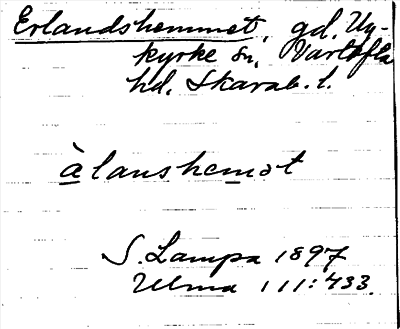 Erlandshemmet, gd. Ny-
kyrke sn, Vartofta
hd. Skarab. l.
àlanshemət
S. Lampa 1897
Ulma 111:433.